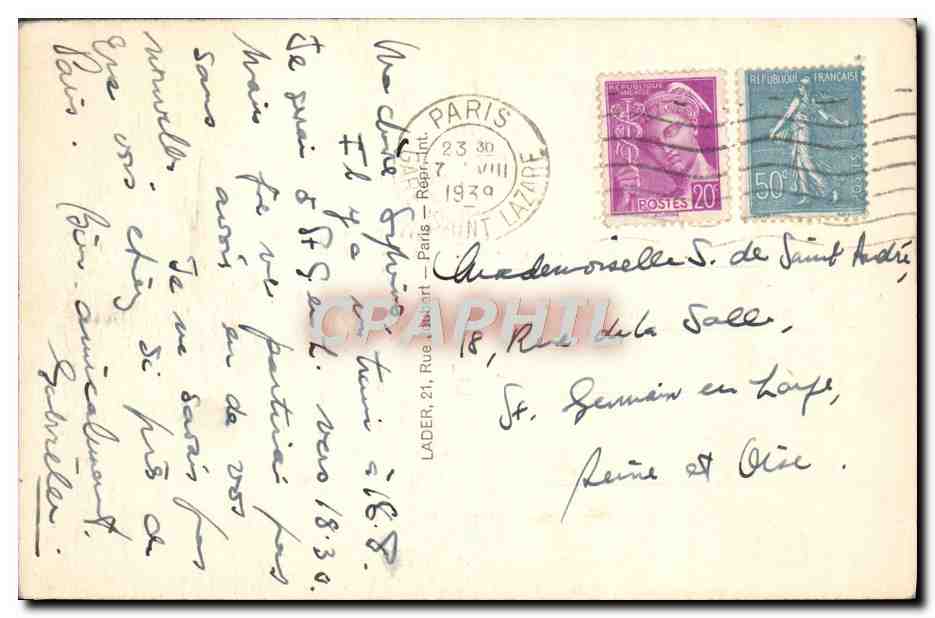 Ma chère Sylvie,
Il y a un train à 18.8.
Je serai à St G en L. vers 18.30
Mais je ne partirai pas
sans avoir eu de vos
nouvelles. Je ne savais pas
que vous étiez si près de
Paris. Bien amicalement.
Gabrielle.
LADER, 21, Rue Joubert — Paris — Repr. Int.
PARIS
GARE SAINT LAZARE
23 30
7 VIII
1939
RÉPUBLIQUE FRANÇAISE
20c
POSTES
RÉPUBLIQUE FRANÇAISE
50c
POSTES
Mademoiselle S. de Saint André,
18, Rue de la Salle,
St. Germain en Laye,
Seine et Oise.
CPAPHIL